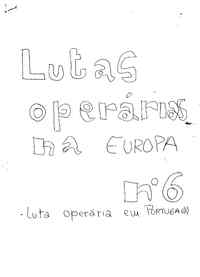 Lutas
operárias
na EUROPA
nº6
. Luta operária em PORTUGAL